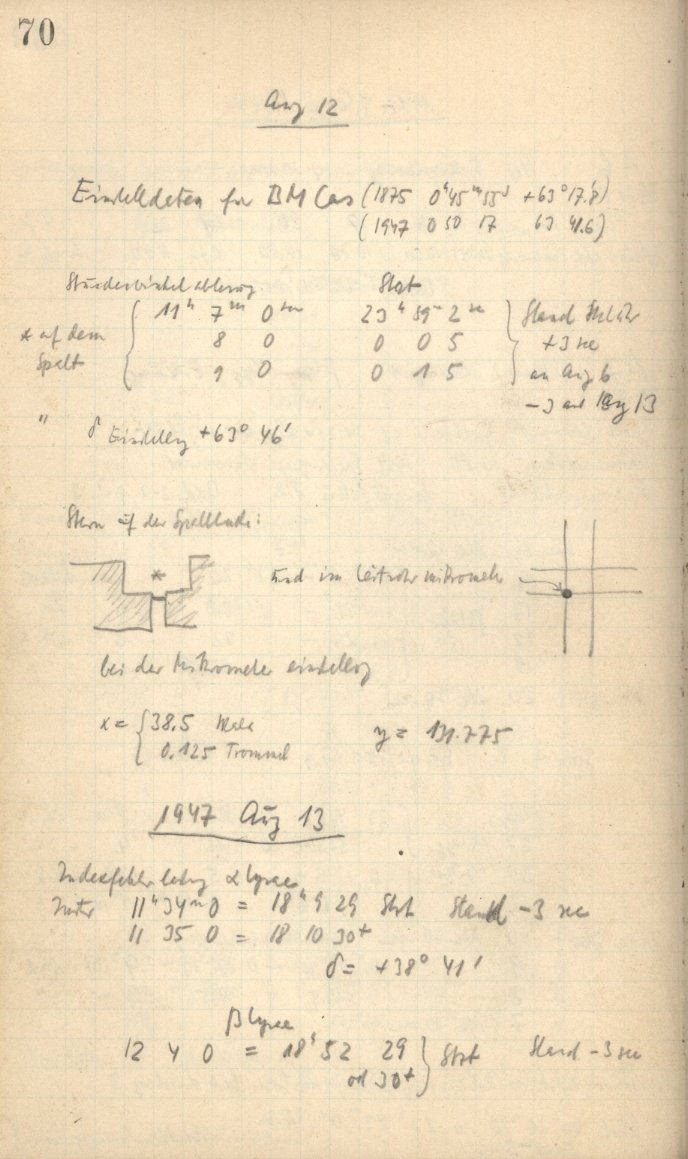 70
Aug 12
Einstelldaten für BM Cas (1875 0ʰ45ᵐ55ˢ +63°17.8)
(1947 0 50 17 63 41.6)
Stundenwinkelablesung Stzt
* auf dem Spalt
11ʰ 7ᵐ 0 23ʰ 59ᵐ 2
8 0 0 0 5
9 0 0 1 5
Stand
+3 sec
an Aug 6
-3 Aug 13
" δ Einstellung +63° 46'
Stern auf der Spaltbacke:
und im Leitrohrmikrometer
bei der Mikrometer einstellung
x = 38.5 Skala
0.125 Trommel
y = 131.775
1947 Aug 13
Indexfehler α Lyrae
11ʰ 34ᵐ 0 = 18ʰ 9 29 Stzt Stand -3 sec
11 35 0 = 18 10 30+
δ = +38° 41'
β Lyrae
12 4 0 = 18ʰ 52 29 Stzt Stand -3 sec
od 30+